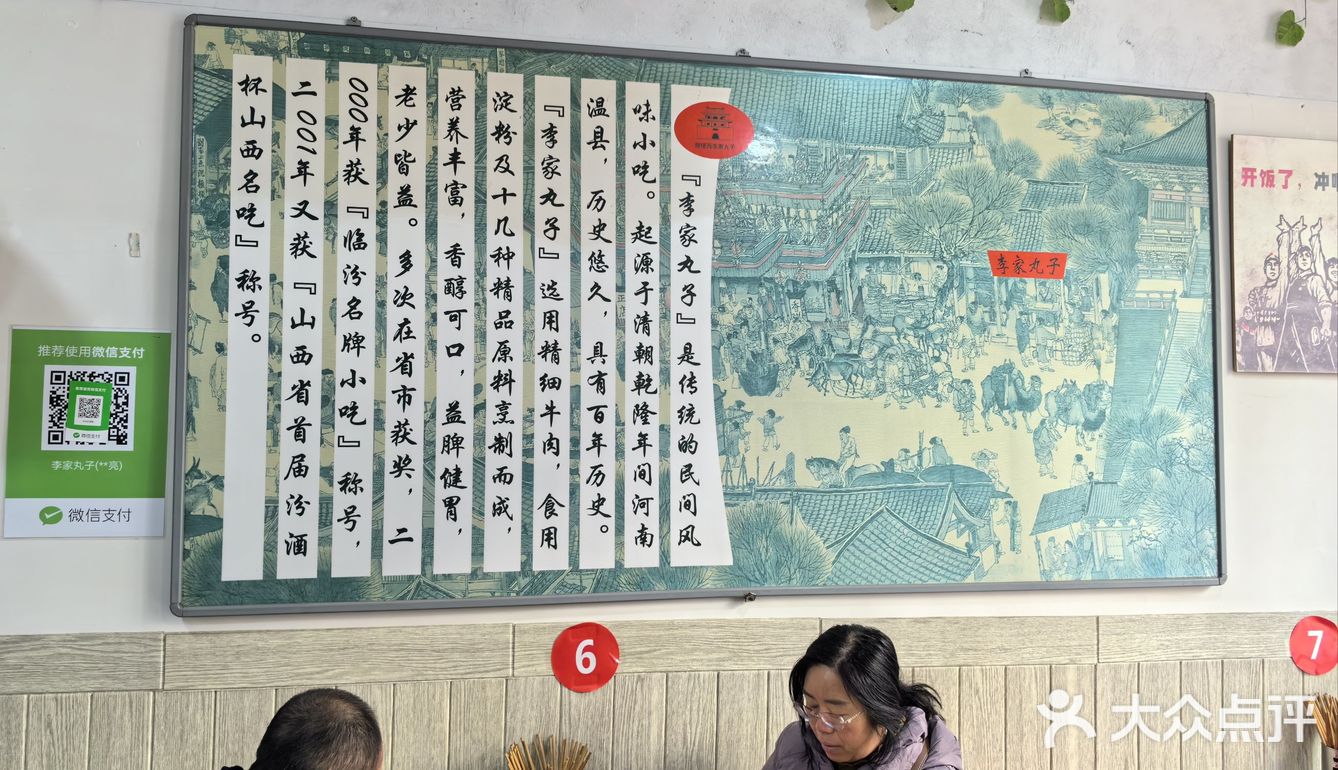 『李家丸子』是传统的民间风
味小吃。起源于清朝乾隆年间河南
温县，历史悠久，具有百年历史。
『李家丸子』选用精细牛肉，食用
淀粉及十几种精品原料烹制而成，
营养丰富，香醇可口，益脾健胃，
老少皆益。多次在省市获奖，二
000年获『临汾名牌小吃』称号，
二001年又获『山西省首届汾酒
杯山西名吃』称号。
李家丸子
开饭了，冲
推荐使用微信支付
李家丸子(**亮)
微信支付
6
7
大众点评